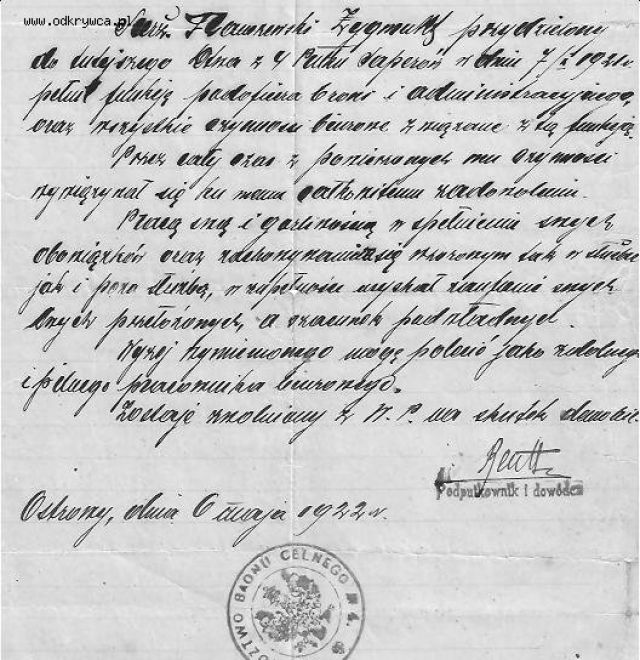 www.odkrywca.pl
Sierż. Zygmunt przydzielony
do tutejszego z 4 Pułku Saperów w dniu 7/ 1921 r.
pełnił funkcję podoficera broni i administracyjnego,
oraz wszystkie czynności biurowe związane z tą funkcją.
Przez cały czas z poruczonych mu czynności
wywiązywał się ku memu całkowitemu zadowoleniu.
Pracą swą i gorliwością w spełnieniu swych
obowiązków oraz się wzorowym tak w służbie
jak i poza służbą, w zupełności uzyskał zaufanie swych
przełożonych, a szacunek podwładnych.
Wyżej wymienionego mogę polecić jako zdolnego
i pilnego pracownika biurowego.
Zostaje zwolniony z W. P. na skutek
Podpułkownik i dowódca
Ostrowy, dnia 6 maja 1922 r.
DZTWO BAONU CELNEGO № 4.